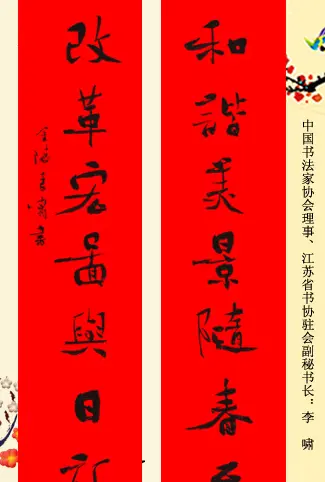 中国书法家协会理事、江苏省书协驻会副秘书长：李 啸
和諧美景隨春至
改革宏圖與日新